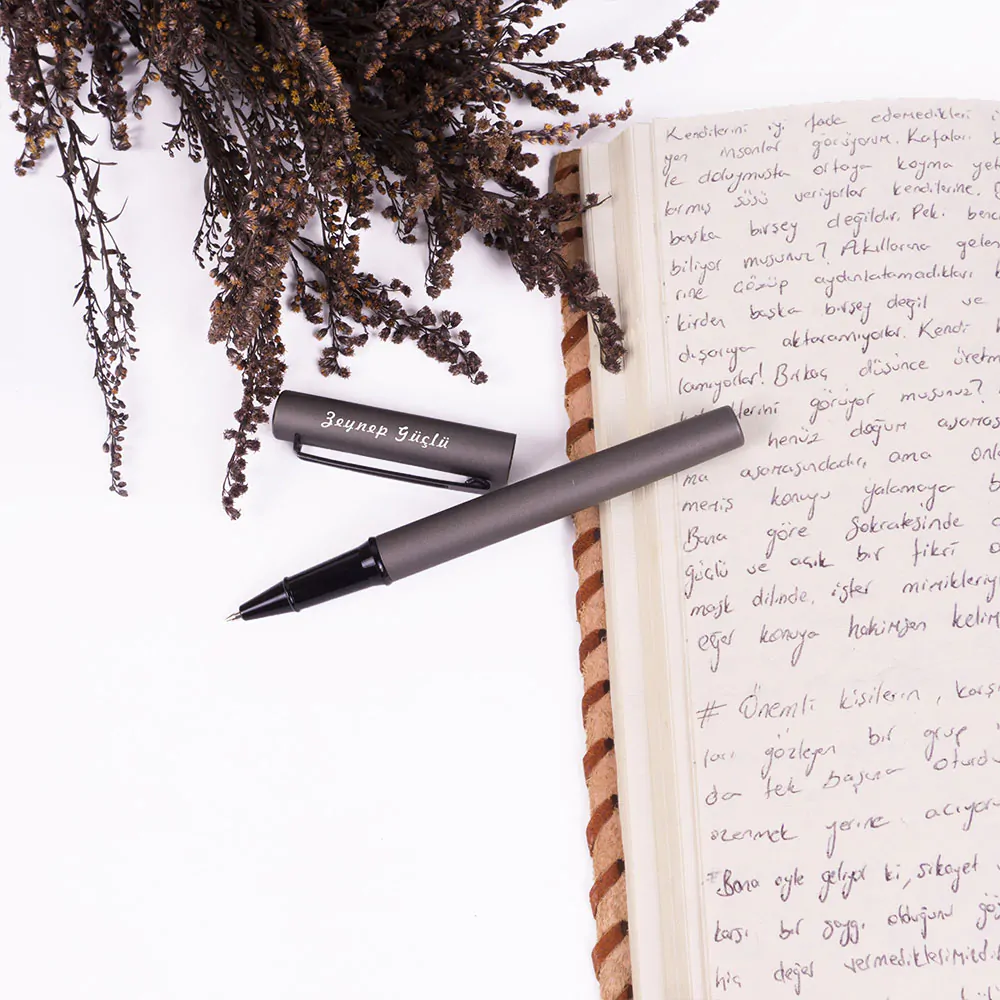 Zeynep Güçlü
Kendilerini iyi ifade edemedikleri
yen insanlar görüyorum. Kafaları
le doluymuşta ortaya koyma yet
larmış süsü veriyorlar kendilerine.
başka birşey değildir. Pek. benc
biliyor musunuz? Akıllarına gelen
rine çözüp aydınlatamadıkları
kirden başka birşey değil ve
dışarıya aktaramıyorlar. Kendi
lamıyorlar! Birkaç düşünce üretm
lerini görüyor musunuz?
henüz doğum aşaması
ma aşamasındadır, ama onla
memiş konuyu yalamaya b
Bana göre Sokratesinde
güçlü ve açık bir fikri o
maşk dilinde, işter mimikleriy
eğer konuya hakimsen kelim
# Önemli kişilerin, karşı
ları gözleyen bir grup
da tek başına oturdu
özenmek yerine, acıyor
"Bana öyle geliyor ki, şikayet
karşı bir saygı olduğunu gö
hiç değer vermediklerimizd